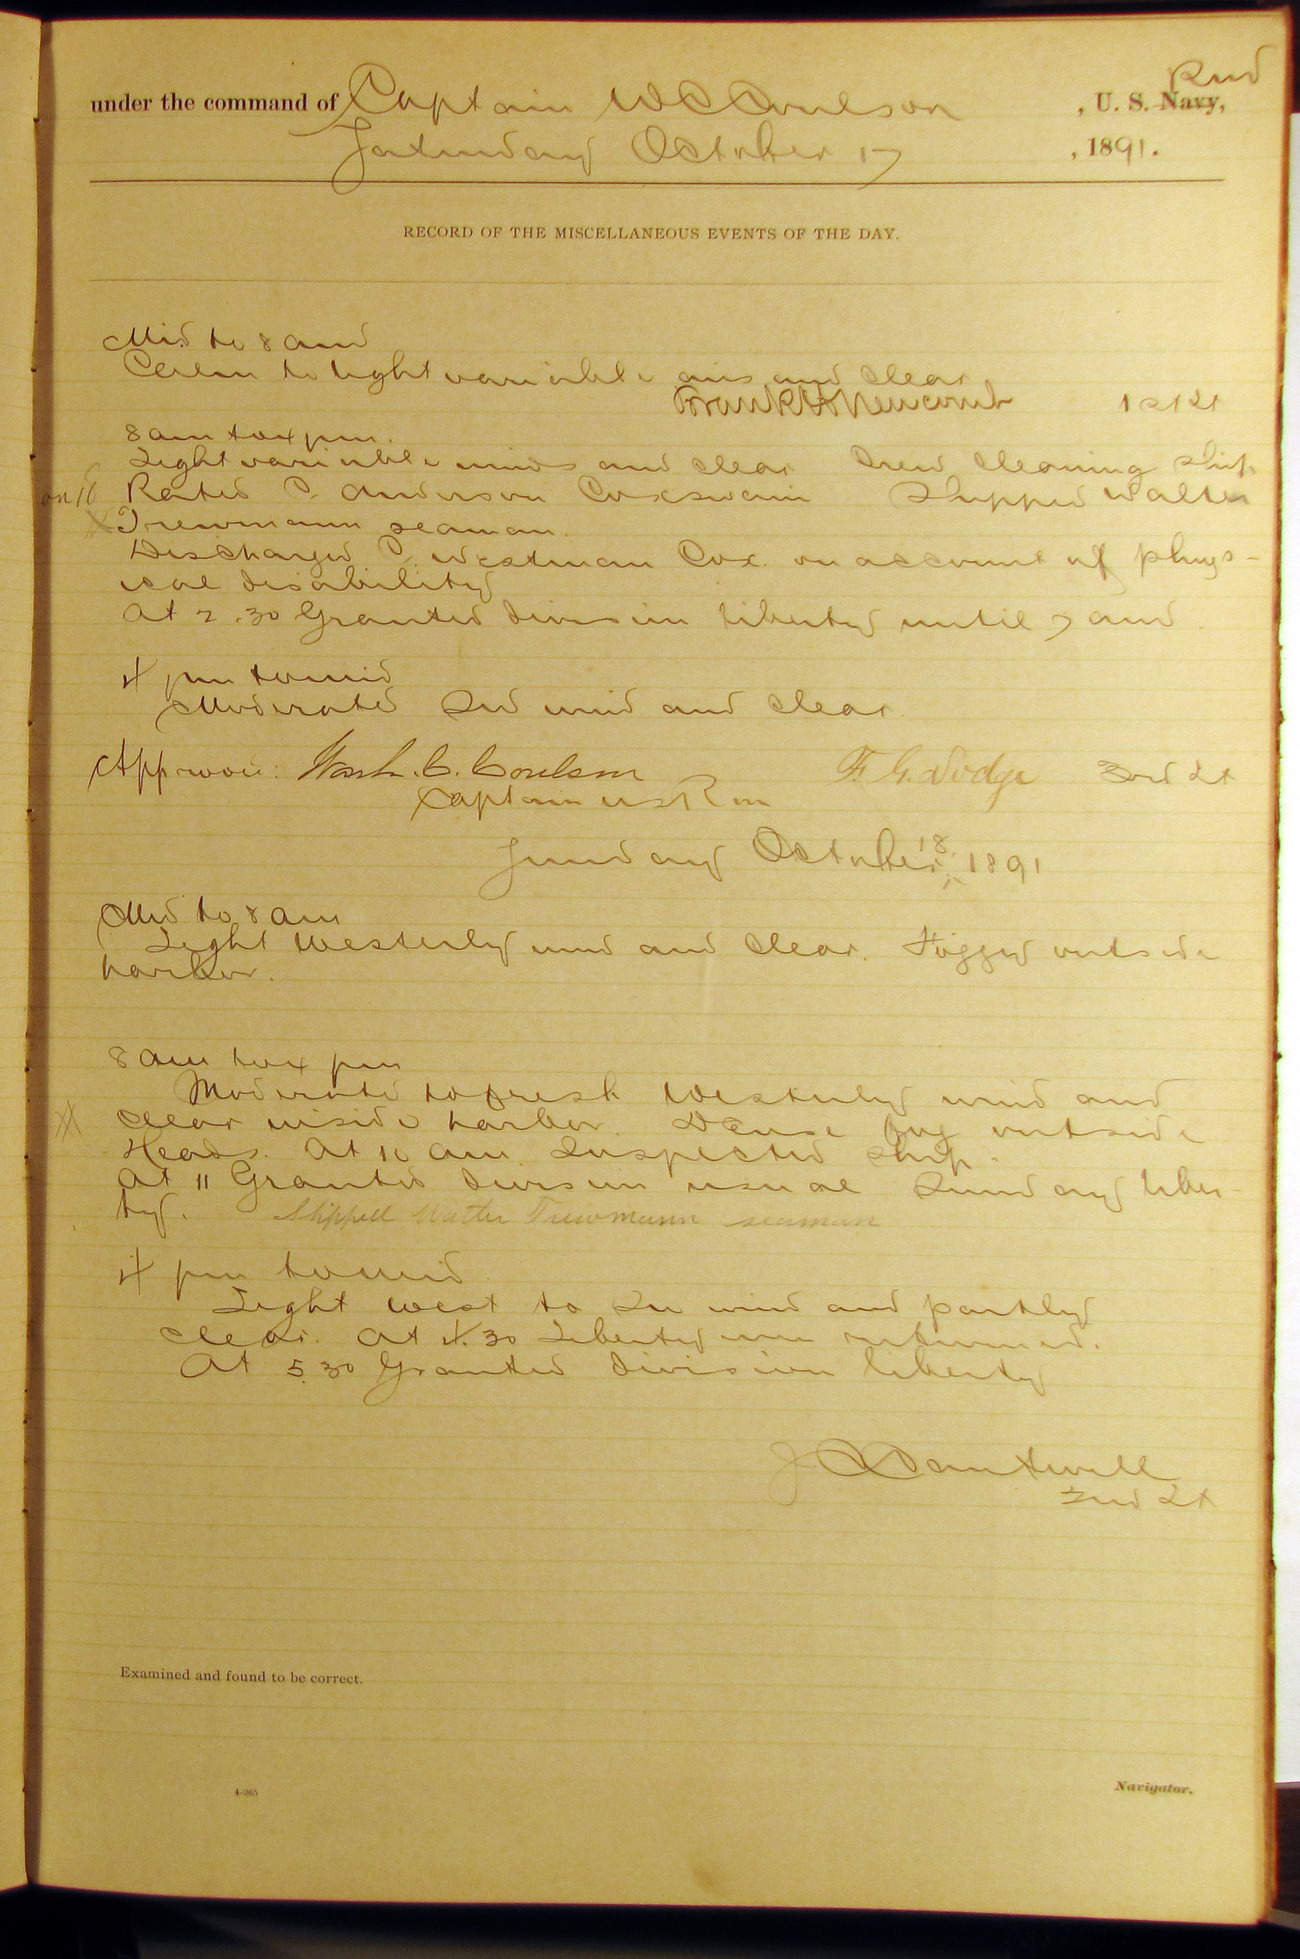 under the command of Captain W C Coulson , U. S. Navy, Rm
Saturday October 17 , 1891.
RECORD OF THE MISCELLANEOUS EVENTS OF THE DAY.
Mid to 8 am
Calm to light variable airs and clear
Frank H Newcomb 1st Lt
8 am to 4 pm.
Light variable winds and clear Crew cleaning ship
on 18 Rated C. Anderson Coxswain Shipped Walter
X Trewmann seaman.
Discharged C. Westman Cox. on account of phys-
ical disability
At 2.30 Granted division liberty until 7 am
4 pm to mid
Moderate SW wind and clear
Approved: Wash. C. Coulson F. G. Dodge 3rd Lt
Captain USRM
Sunday October 18, 1891
Mid to 8 am
Light Westerly wind and clear. Foggy outside
harbor.
8 am to 4 pm
Moderate to fresh Westerly wind and
clear inside harbor. Dense fog outside
Heads. At 10 am Inspected ship.
At 11 Granted division usual Sunday liber-
ty. Shipped Walter Trewmann seaman
4 pm to mid
Light West to SW wind and partly
clear. At 4.30 Liberty men returned.
At 5.30 Granted division liberty
J C Cantwell
2nd Lt
Examined and found to be correct.
4-265
Navigator.